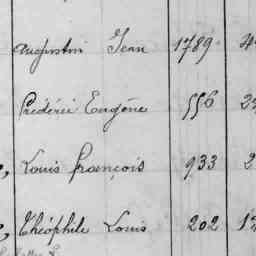 Augustin Jean 1789 4
Frédéric Eugène 556 2
, Louis François 933 2
, Théophile Louis 202 1